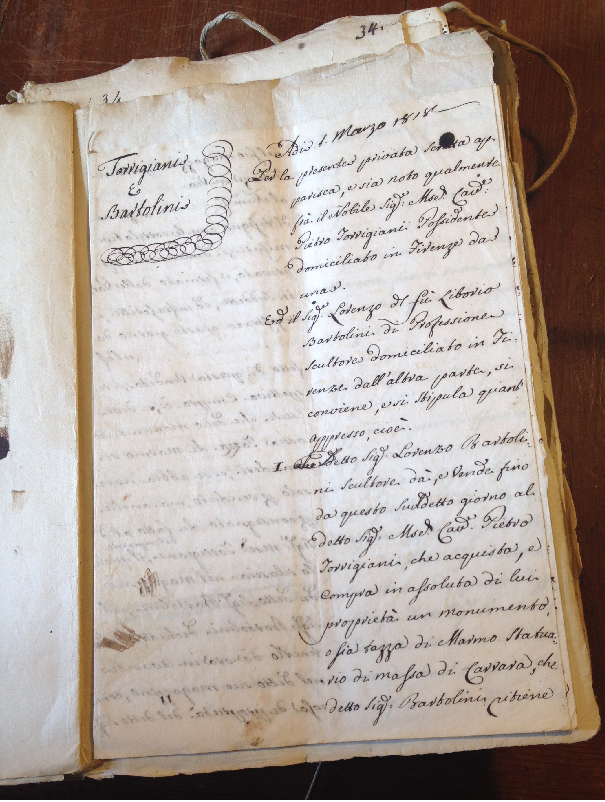 34.
34
Torrigiani
&
Bartolini
Adì 1. Marzo 1818
Per la presente privata Scritta ap-
parisca, e sia noto qualmente
frà il Nobile Sigr. Mse. Cavr.
Pietro Torrigiani Possidente
domiciliato in Firenze da
una.
Ed il Sigr. Lorenzo del fù Liborio
Bartolini di Professione
Scultore domiciliato in Fi-
renze dall'altra parte, si
conviene, e si Stipula quant'
appresso, cioè.
1. detto Sigr. Lorenzo Bartoli-
ni Scultore dà, e vende fino
da questo Sudetto giorno al
detto Sigr. Mse. Cavr. Pietro
Torrigiani, che acquista, e
Compra in assoluta di lui
proprietà un monumento,
o sia tazza di Marmo Statua-
rio di massa di Carrara, che
detto Sigr. Bartolini ritiene